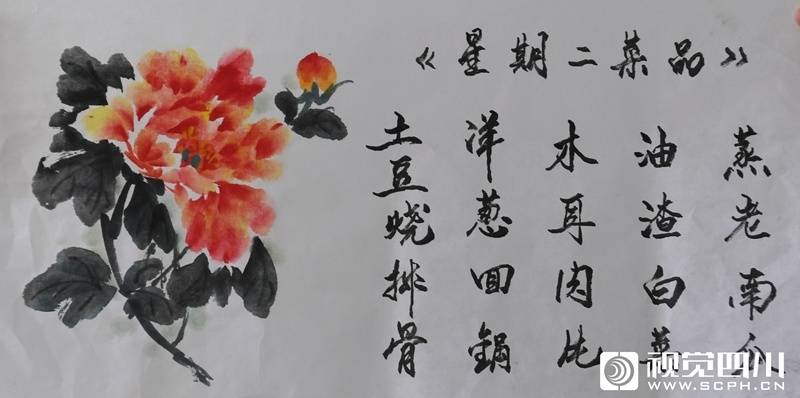 《星期二菜品》
土豆烧排骨
洋葱回锅
木耳肉片
油渣白菜
蒸老南瓜
视觉四川
WWW.SCPH.CN